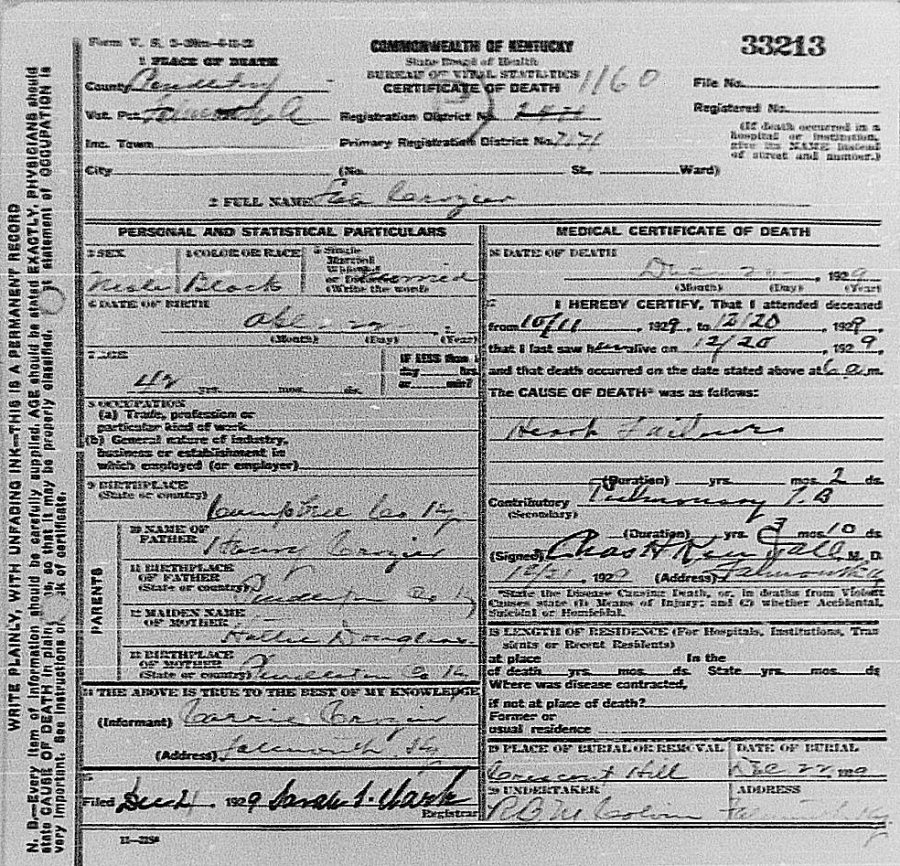 Form V. S.
COMMONWEALTH OF KENTUCKY
33213
1 PLACE OF DEATH
State Board of Health
BUREAU OF VITAL STATISTICS
1160
County Pendleton
CERTIFICATE OF DEATH
File No.
Vot. Pct. Falmouth
Registration District No.
Registered No.
Inc. Town
Primary Registration District No. 7171
(If death occurred in a
hospital or institution,
give its NAME instead
of street and number.)
City (No. St., Ward)
2 FULL NAME Crozier
PERSONAL AND STATISTICAL PARTICULARS
3 SEX
Male
4 COLOR OR RACE
Black
5 Single
Married
Widowed
or Divorced
(Write the word)
Married
6 DATE OF BIRTH
(Month) (Day) (Year)
7 AGE
42 yrs. mos. ds.
IF LESS than 1
day hrs.
or min?
8 OCCUPATION
(a) Trade, profession or
particular kind of work
(b) General nature of industry,
business or establishment in
which employed (or employer)
9 BIRTHPLACE
(State or country)
Co Ky.
PARENTS
10 NAME OF
FATHER
Crozier
11 BIRTHPLACE
OF FATHER
(State or country)
Pendleton Co Ky
12 MAIDEN NAME
OF MOTHER
13 BIRTHPLACE
OF MOTHER
(State or country)
Pendleton Co Ky
14 THE ABOVE IS TRUE TO THE BEST OF MY KNOWLEDGE
(Informant) Carrie Crozier
(Address) Falmouth Ky
15
Filed Dec 21 1929 Sarah Registrar
MEDICAL CERTIFICATE OF DEATH
16 DATE OF DEATH
Dec 20, 1929
(Month) (Day) (Year)
17 I HEREBY CERTIFY, That I attended deceased
from 10/11, 1929, to 12/20, 1929,
that I last saw h alive on 12/20, 1929,
and that death occurred on the date stated above at 6 a.m.
The CAUSE OF DEATH* was as follows:
Heart Failure
(Duration) yrs. mos. 2 ds.
Contributory Pulmonary T.B
(Secondary)
(Duration) yrs. 3 mos. 10 ds.
(Signed) Chas H Kendall M. D.
12/21, 1929 (Address) Falmouth Ky
*State the Disease Causing Death, or, in deaths from Violent
Causes state (1) Means of Injury; and (2) whether Accidental,
Suicidal or Homicidal.
18 LENGTH OF RESIDENCE (For Hospitals, Institutions, Tran
sients or Recent Residents)
at place In the
of death yrs. mos. ds. State yrs. mos. ds.
Where was disease contracted,
if not at place of death?
Former or
usual residence
19 PLACE OF BURIAL OR REMOVAL
Crescent Hill
DATE OF BURIAL
Dec 22, 1929
20 UNDERTAKER
ADDRESS
WRITE PLAINLY, WITH UNFADING INK—THIS IS A PERMANENT RECORD
N. B.—Every item of information should be carefully supplied. AGE should be stated EXACTLY. PHYSICIANS should
state CAUSE OF DEATH in plain so that it may be properly classified. statement of OCCUPATION is
very important. See instructions of certificate.